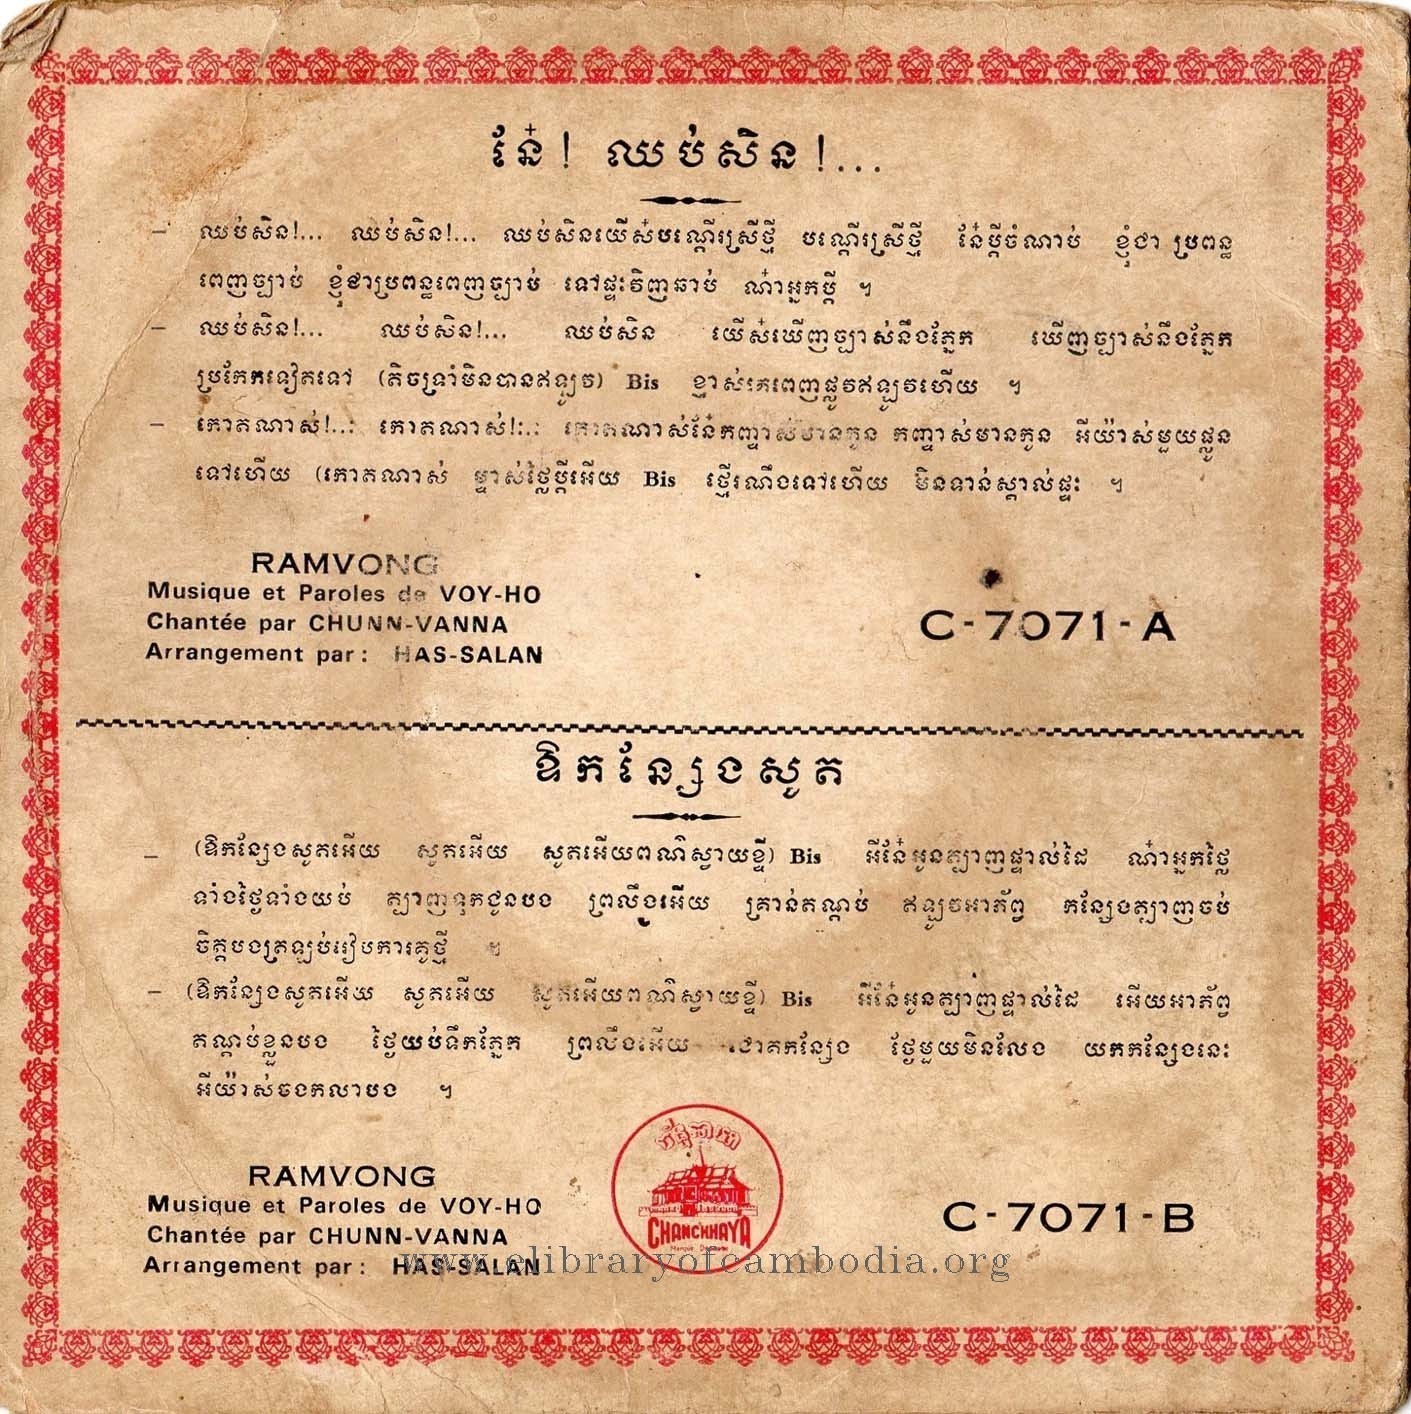 ន៎ែ! ឈប់សិន!...
– ឈប់សិន!... ឈប់សិន!... ឈប់សិនយើស៎បណ្ដើរស្រីថ្មី បណ្ដើរស្រីថ្មី ន៎ែប្ដីចំណាប់ ខ្ញុំជា ប្រពន្ធ
ពេញច្បាប់ ខ្ញុំជាប្រពន្ធពេញច្បាប់ ទៅផ្ទះវិញឆាប់ ណ៎ាអ្នកប្ដី ។
– ឈប់សិន!... ឈប់សិន!... ឈប់សិន យើស៎ឃើញច្បាស់នឹងភ្នែក ឃើញច្បាស់នឹងភ្នែក
ប្រកែកទៀតទៅ (តិចទ្រាំមិនបានឥឡូវ) Bis ខ្មាស់គេពេញផ្លូវឥឡូវហើយ ។
– កោតណាស់!... កោតណាស់!... កោតណាស់ន៎ែកញ្ចាស់មានកូន កញ្ចាស់មានកូន អីយ៉ាស់មួយផ្លូន
ទៅហើយ (កោតណាស់ ម្ចាស់ថ្លៃប្ដីអើយ Bis ថ្មើរណឹងទៅហើយ មិនទាន់ស្គាល់ផ្ទះ ។
RAMVONG
Musique et Paroles de VOY-HO
Chantée par CHUNN-VANNA
Arrangement par: HAS-SALAN
C-7071-A
ឱកន្សែងសូត
– (ឱកន្សែងសូតអើយ សូតអើយ សូតអើយពណ៌ស្វាយខ្ចី) Bis អីន៎ែអូនត្បាញផ្ទាល់ដៃ ណ៎ាអ្នកថ្លៃ
ទាំងថ្ងៃទាំងយប់ ត្បាញទុកជូនបង ព្រលឹងអើយ គ្រាន់តណ្ដប់ ឥឡូវអាភ័ព្វ កន្សែងត្បាញចប់
ចិត្តបងត្រឡប់រៀបការគូថ្មី ។
– (ឱកន្សែងសូតអើយ សូតអើយ សូតអើយពណ៌ស្វាយខ្ចី) Bis អីន៎ែអូនត្បាញផ្ទាល់ដៃ អើយអាភ័ព្វ
តណ្ដប់ខ្លួនបង ថ្ងៃយប់ទឹកភ្នែក ព្រលឹងអើយ ជោគកន្សែង ថ្ងៃមួយមិនលែង យកកន្សែងនេះ
អីយ៉ាស់ចងកលាបង ។
RAMVONG
Musique et Paroles de VOY-HO
Chantée par CHUNN-VANNA
Arrangement par: HAS-SALAN
CHANCHHAYA
C-7071-B
www.elibraryofcambodia.org